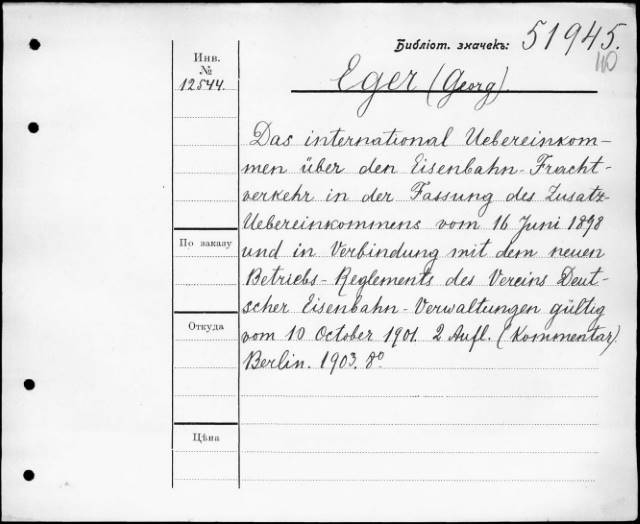 Библіот. значекъ: 51945.
110
Инв.
№
12544.
Eger (Georg).
Das international Uebereinkom-
men über den Eisenbahn-Fracht-
verkehr in der Fassung des Zusatz-
Uebereinkommens vom 16 Juni 1898
und in Verbindung mit dem neuen
Betriebs-Reglements des Vereins Deut-
scher Eisenbahn-Verwaltungen gültig
vom 10 October 1901. 2 Aufl. (Kommentar).
Berlin. 1903. 8º
По заказу
Откуда
Цѣна